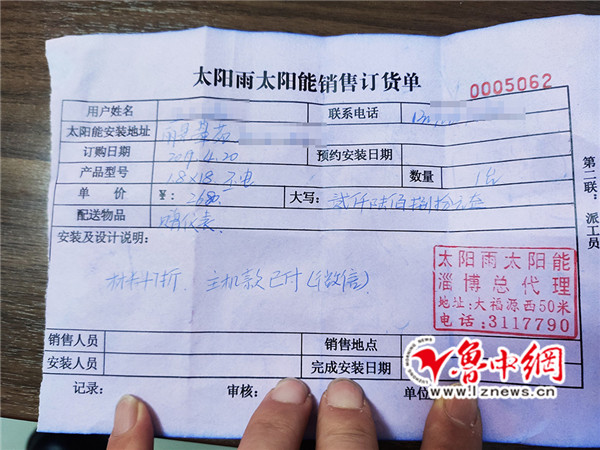 太阳雨太阳能销售订货单
0005062
用户姓名 联系电话
太阳能安装地址
订购日期 2019.4.20 预约安装日期
产品型号 18×18 数量 1台
单 价 ¥: 2680 大写: 贰仟陆佰捌拾元
配送物品
安装及设计说明:
材料7折 主机款已付(微信)
太阳雨太阳能
淄博总代理
地址:大福源西50米
电话:3117790
销售人员 销售地点
安装人员 完成安装日期
记录: 审核: 单位
第二联:派工员
鲁中網
www.lznews.cn